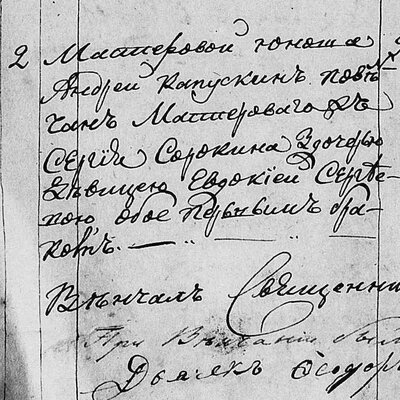 2 Мастеровой юноша
Андрей Капускинъ повѣн
чанъ Мастероваго
Сергія Сорокина Здочерью
Дѣвицею Евдокіей Сергѣе-
вою обое первымъ бра-
комъ. — „ — „ —
Вѣнчалъ Священни
При Вѣнчаніи был
Дьячкъ Ѳеодор